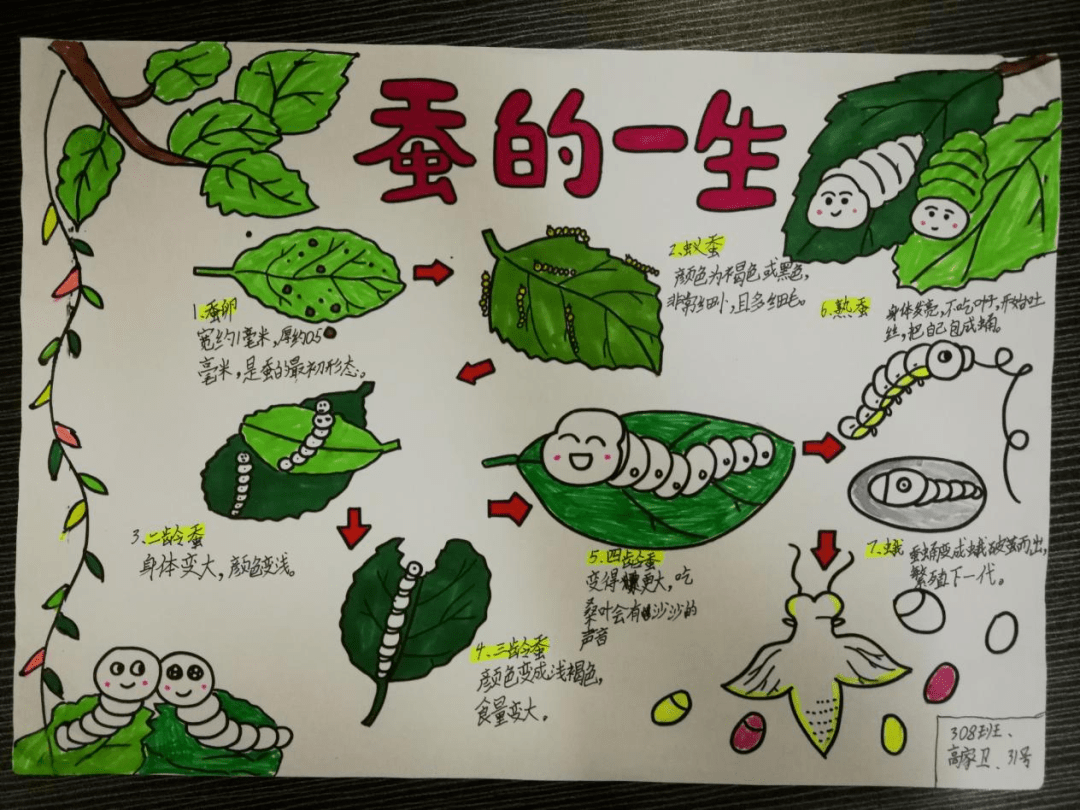 蚕的一生
1、蚕卵
宽约1毫米，厚约0.5
毫米，是蚕的最初形态。
2、蚁蚕
颜色为褐色或黑色，
非常细小，且多细毛。
3、二龄蚕
身体变大，颜色变浅。
4、三龄蚕
颜色变成浅褐色，
食量变大。
5、四龄蚕
变得更大，吃
桑叶会有沙沙的
声音
6、熟蚕
身体发亮，不吃叶子，开始吐
丝，把自己包成蛹。
7、蛾 蚕蛹变成蛾破茧而出，
繁殖下一代。
308班、
高家卫、31号